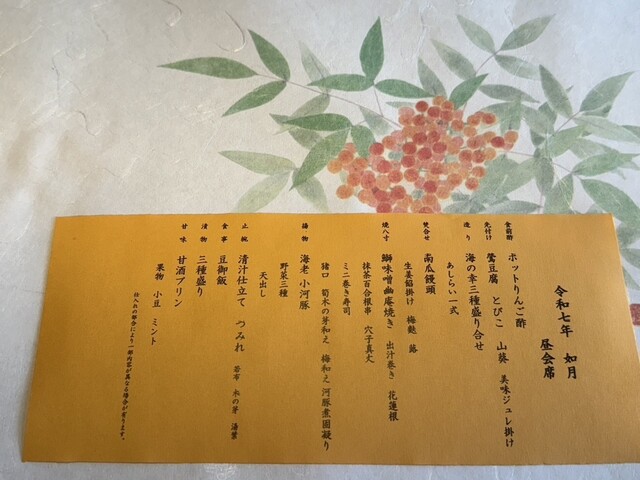 令和七年 如月
昼会席
食前酢 ホットりんご酢
先付け 鶯豆腐 とびこ 山葵 美味ジュレ掛け
造り 海の幸三種盛り合せ
あしらい一式
焚合せ 南瓜饅頭
生姜餡掛け 梅麩 蕗
焼八寸 鰤味噌幽庵焼き 出汁巻き 花蓮根
抹茶百合根串 穴子真丈
ミニ巻き寿司
猪口 筍木の芽和え 梅和え 河豚煮凝り
揚物 海老 小河豚
野菜三種
天出し
止椀 清汁仕立て つみれ 若布 木の芽 湯葉
食事 豆御飯
漬物 三種盛り
甘味 甘酒プリン
果物 小豆 ミント
仕入れの都合により一部内容が異なる場合が有ります。